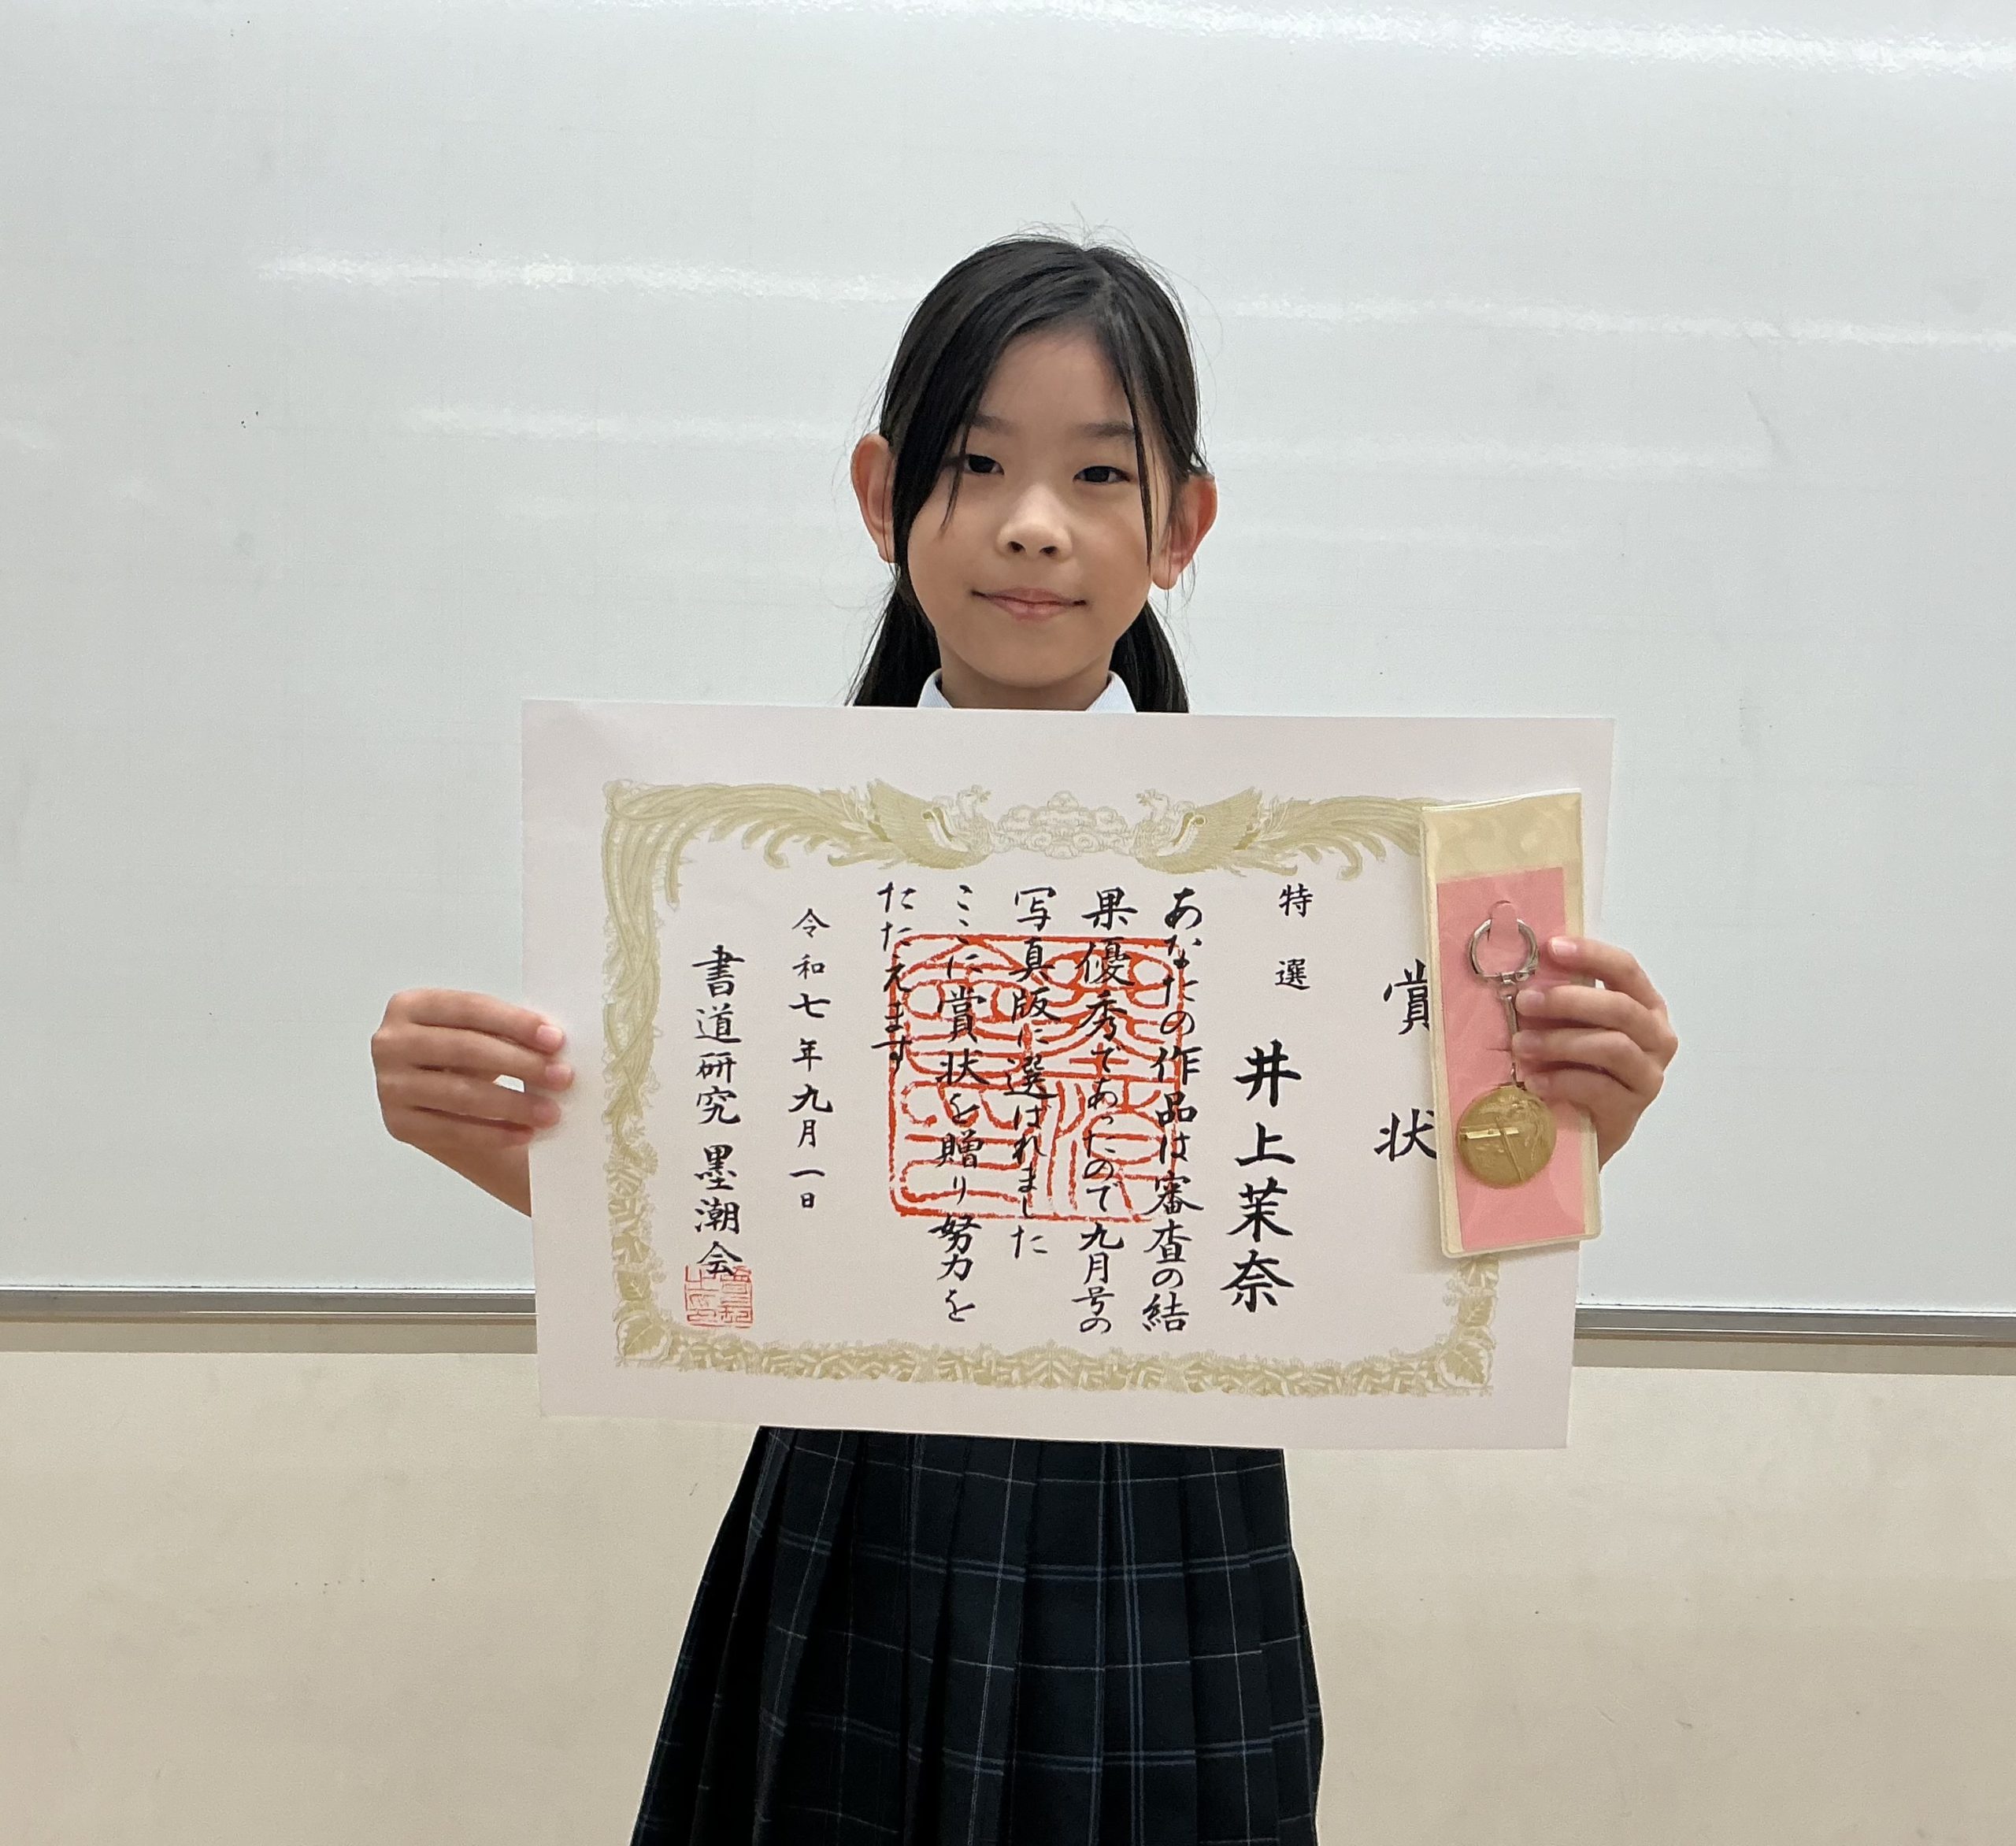 賞状
特選
井上茉奈
あなたの作品は審査の結
果優秀であったので九月号の
写真版に選ばれました
ここに賞状を贈り努力を
たたえます
令和七年九月一日
書道研究墨潮会